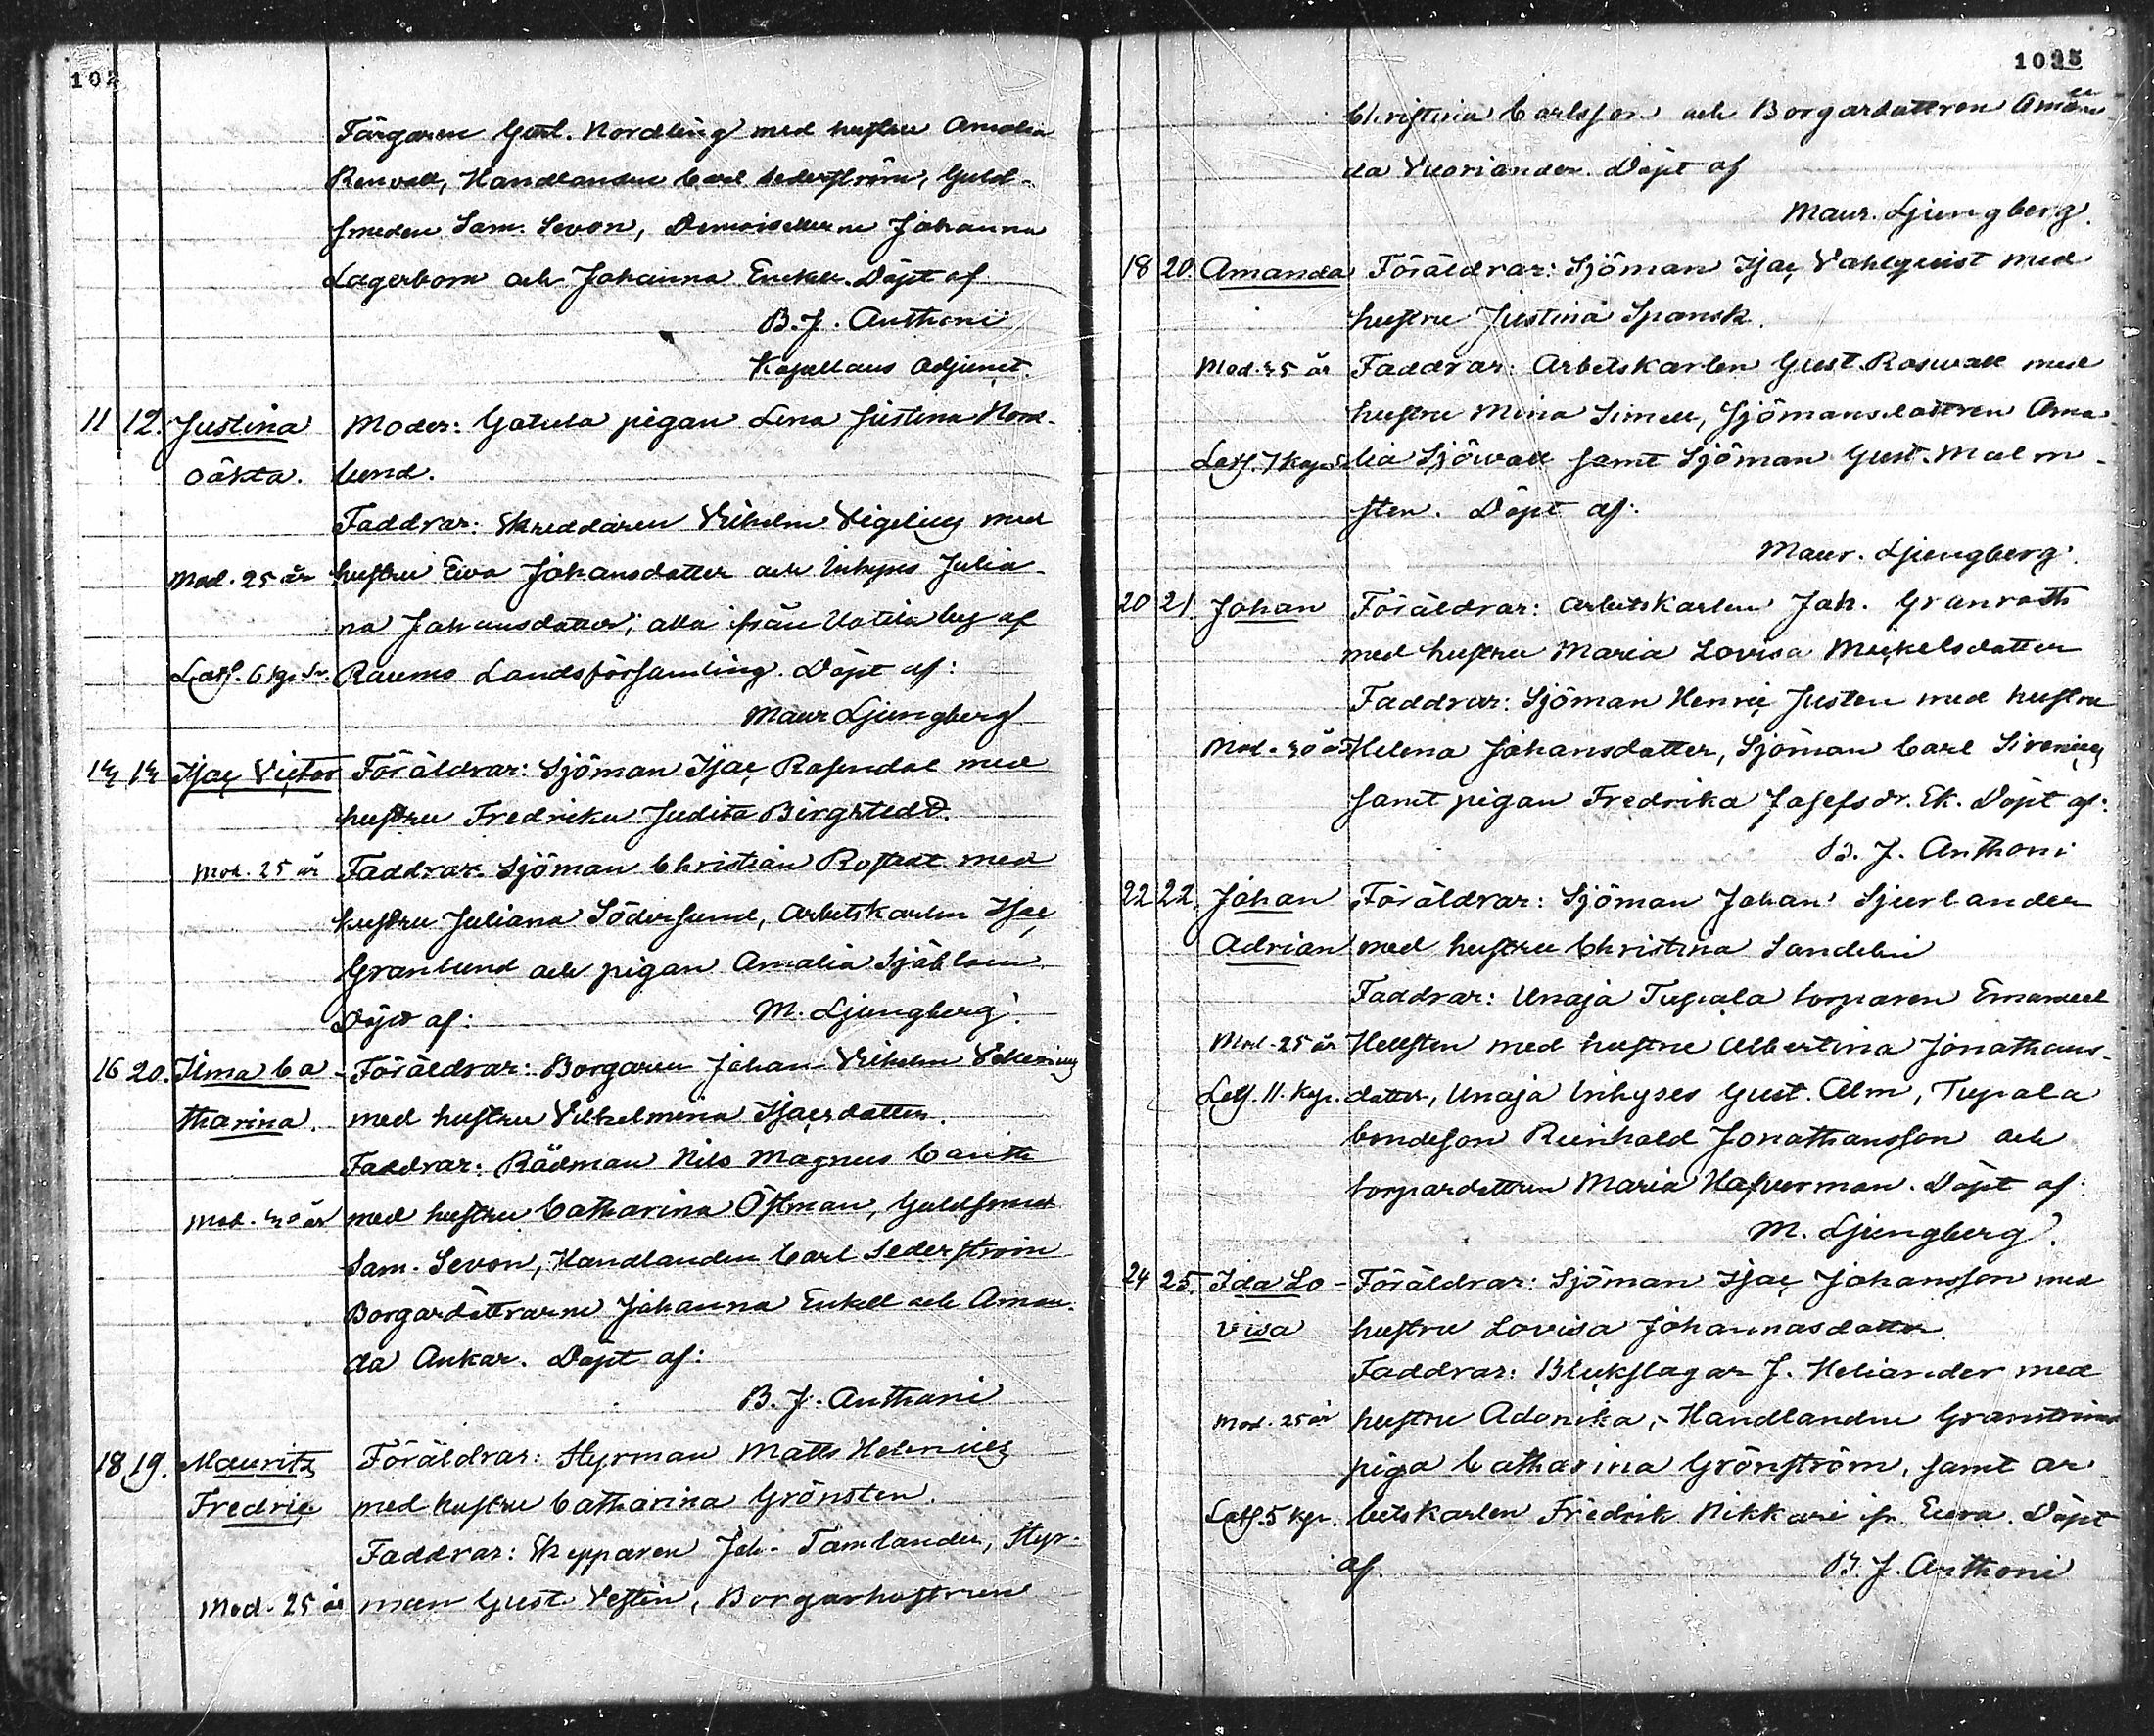 102
Färgaren Gust. Nordling med hustru Amalia
Renvall, Handlanden Carl Sederström, Guld-
smeden Sam. Sevon, Demoisellerne Johanna
Lagerbom och Johanna Enckell. Döpt af
B. J. Anthoni
Kapellans Adjunct.
11 12. Justina Moder: Gatula pigan Lena Justina Nord-
oäkta. lund.
Faddrar: Skreddaren Vilhelm Vigelius med
Mod. 25 år hustru Eva Johansdotter och Inhyses Julia-
na Johansdotter, alla ifrån Uotila by af
Läsf. 6 kp. Sv. Raumo Landsförsamling. Döpt af:
Maur Ljungberg
14 14 Isac Victor Föräldrar: Sjöman Isac Rosendal med
hustru Fredrika Judita Birgstedt.
Mod. 25 år Faddrar: Sjöman Christian Rostedt med
hustru Juliana Söderlund, Arbetskarlen Isac
Granlund och pigan Amalia Sjöblom
Döpt af: M. Ljungberg.
16 20. Ilma Ca- Föräldrar: Borgaren Johan Vilhelm
tharina. med hustru Vilhelmina Isacsdotter.
Faddrar: Rådman Nils Magnus Canth
Mod. 40 år med hustru Catharina Östman, Guldsmed
Sam. Sevon, Handlanden Carl Sederström
Borgardöttrarne Johanna Enkell och Aman-
da Ankar. Döpt af:
B. J. Anthoni
18 19. Mauritz Föräldrar: Styrman Matts Helenius
Fredric med hustru Catharina Grönsten.
Faddrar: Skepparen Joh. Tamlander, Styr-
Mod. 25 år man Gust. Vestin, Borgarhustrun
103
Christina Carlsson och Borgardottren Aman-
da Vuoriander. Döpt af
Maur. Ljungberg.
18 20. Amanda Föräldrar: Sjöman Isac Vahlquist med
hustru Justina Spansk.
Mod. 35 år Faddrar: Arbetskarlen Gust. Rosvall med
hustru Mina Simell, Sjömansdottren Ama-
Läsf. 7 kap. lia Sjövall samt Sjöman Gust. Malm-
sten. Döpt af:
Maur. Ljungberg.
20 21. Johan Föräldrar: Arbetskarlen Joh. Granroth
med hustru Maria Lovisa Mickelsdotter
Faddrar: Sjöman Henric Justen med hustru
Mod. 30 år Helena Johansdotter, Sjöman Carl Sirenius
samt pigan Fredrika Josefsdr. Ek. Döpt af:
B. J. Anthoni
22 22. Johan Föräldrar: Sjöman Johan Sjurlander
Adrian med hustru Christina Sandelin
Faddrar: Unaja Tupala torparen Emanuel
Mod. 25 år Hellsten med hustru Albertina Jonathans-
Läsf. 11. kp. dotter, Unaja Inhyses Gust. Alm, Tupala
bondeson Reinhold Jonathansson och
torpardottren Maria Hafverman. Döpt af:
M. Ljungberg.
24 25. Ida Lo- Föräldrar: Sjöman Isac Johansson med
visa hustru Lovisa Johannasdotter.
Faddrar: Bleckslagar J. Heliander med
Mod. 25 år hustru Adonika, Handlanden Granströms
piga Catharina Grönström, samt ar
Läsf. 5 kp. betskarlen Fredrik Nikkari ifr. Eura. Döpt
af. B. J. Anthoni